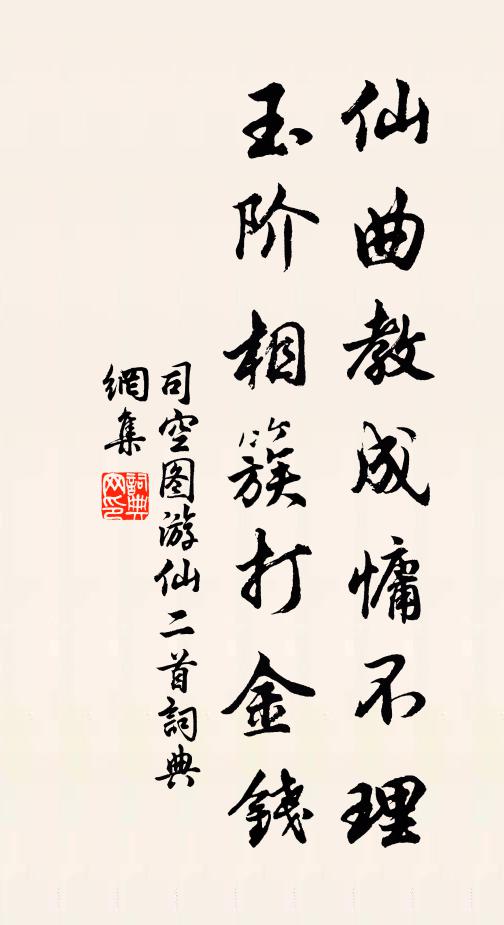 仙曲教成慵不理
玉阶相簇打金錢
司空图游仙二首詞典
網集
詞典网印